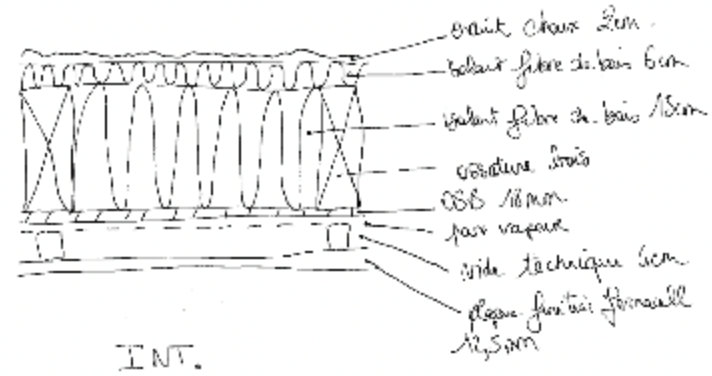 enduit chaux 2cm
isolant fibre de bois 6cm
isolant fibre de bois 15cm
ossature bois
OSB 18mm
par vapeur
vide technique 6cm
plaque finition fermacell
12,5mm
INT.